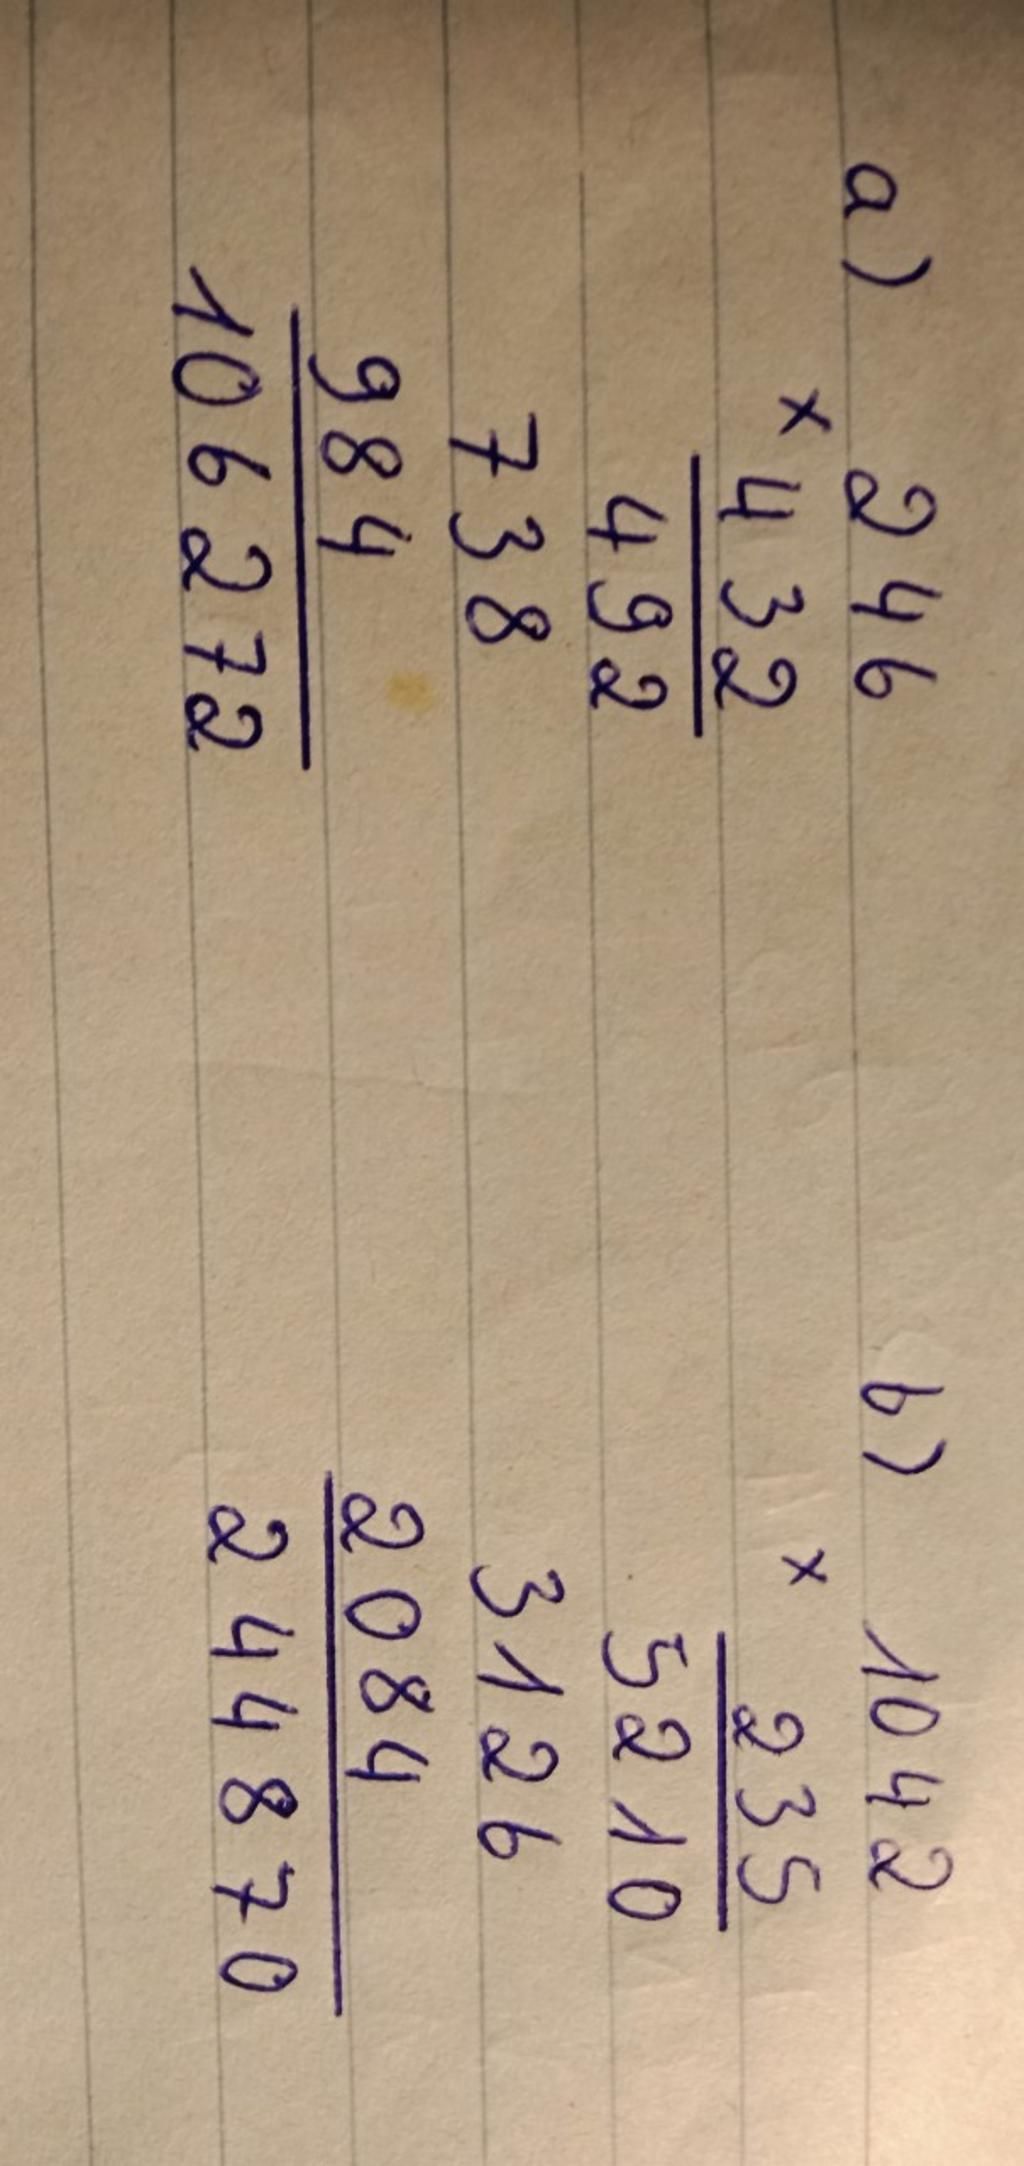 a) 246
× 432
492
738
984
106272
b) 1042
× 235
5210
3126
2084
244870